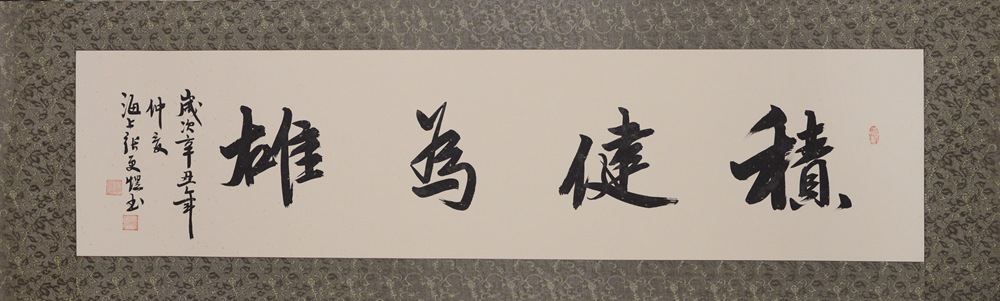 積健為雄
歲次辛丑年
仲夏
海上張更煜书